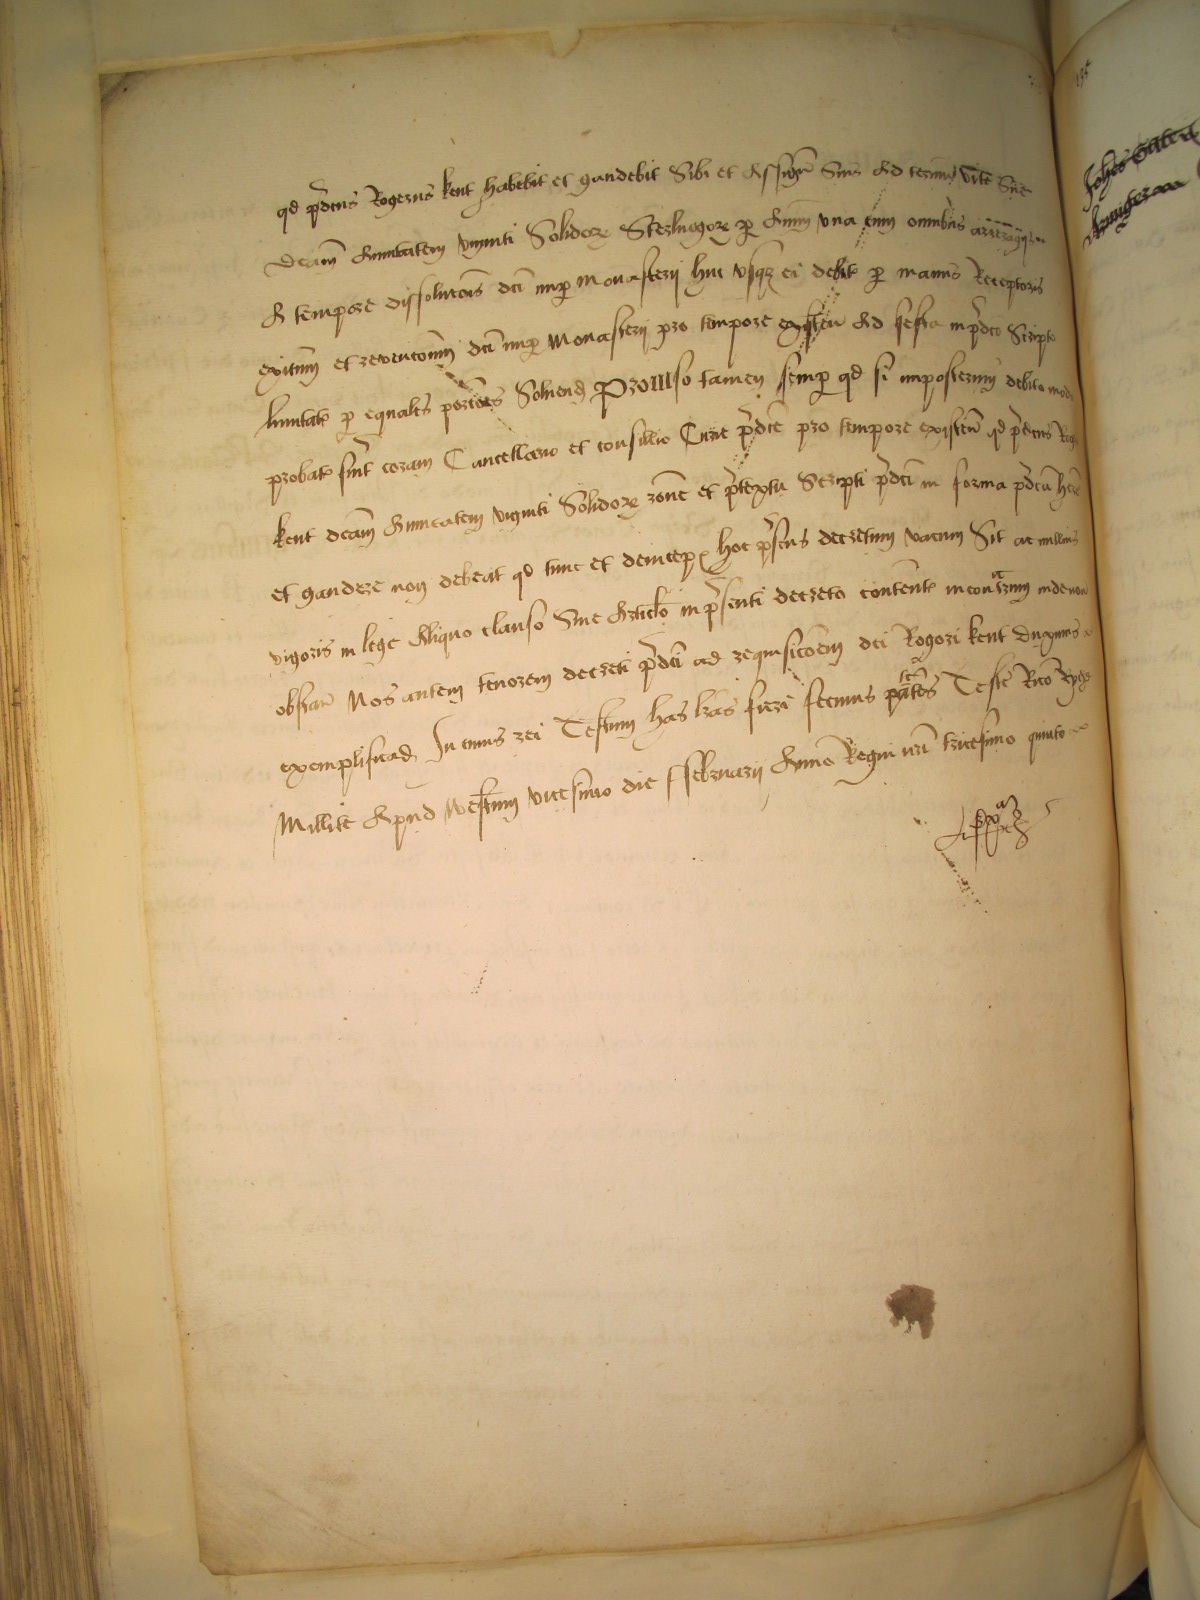 qd p̄dcus Rogerus kent habebit et gaudebit Sibi et Assign̄ Suis Ad terminū vite Sue
dcam̄ Annuitatem viginti Solidor̄ Sterlingor̄ p̱ Annū vna cum omnibus arreragijs
A tempore dissolucōis dci nup̱ Monasterij huc vsq̱ ei debit̄ p̱ manus Receptoris
exituum et revencionū dci nup̱ Monasterij pro tempore existen̄ Ad festa in p̄dco Scripto
limitat̄ p̱ equales porcōes Solvend Proviso tamen semp̱ qd si imposterum debito modo
probat̄ fu̅it coram Cancellario et consilio Curie p̄dce pro tempore existen̄ qd p̄dcus
kent dcam̄ Annuitatem viginti Solidor̄ rōne et p̄textu Scripti p̄dci in forma p̄dca h̅ere
et gaudere non debeat qd tunc et deinceps hoc p̄sens decretum vacuum Sit ac nullius
vigoris in lege Aliquo clauso Sive Articlo in p̄senti decreto content̄ in contrariū inde non
obstan̄ Nos autem tenorem decreti p̄dci ad requisicōem dci Rogeri kent duximus
exemplificad In cuius rei Testim̄ has l̅r̅as fieri fecimus paten̄tes Teste Rico Ryche
Millite Apud Westm̄ vicesimo die Ffebruarij Anno Regni n̅r̅i tricesimo quinto
135
Johes
Armiger